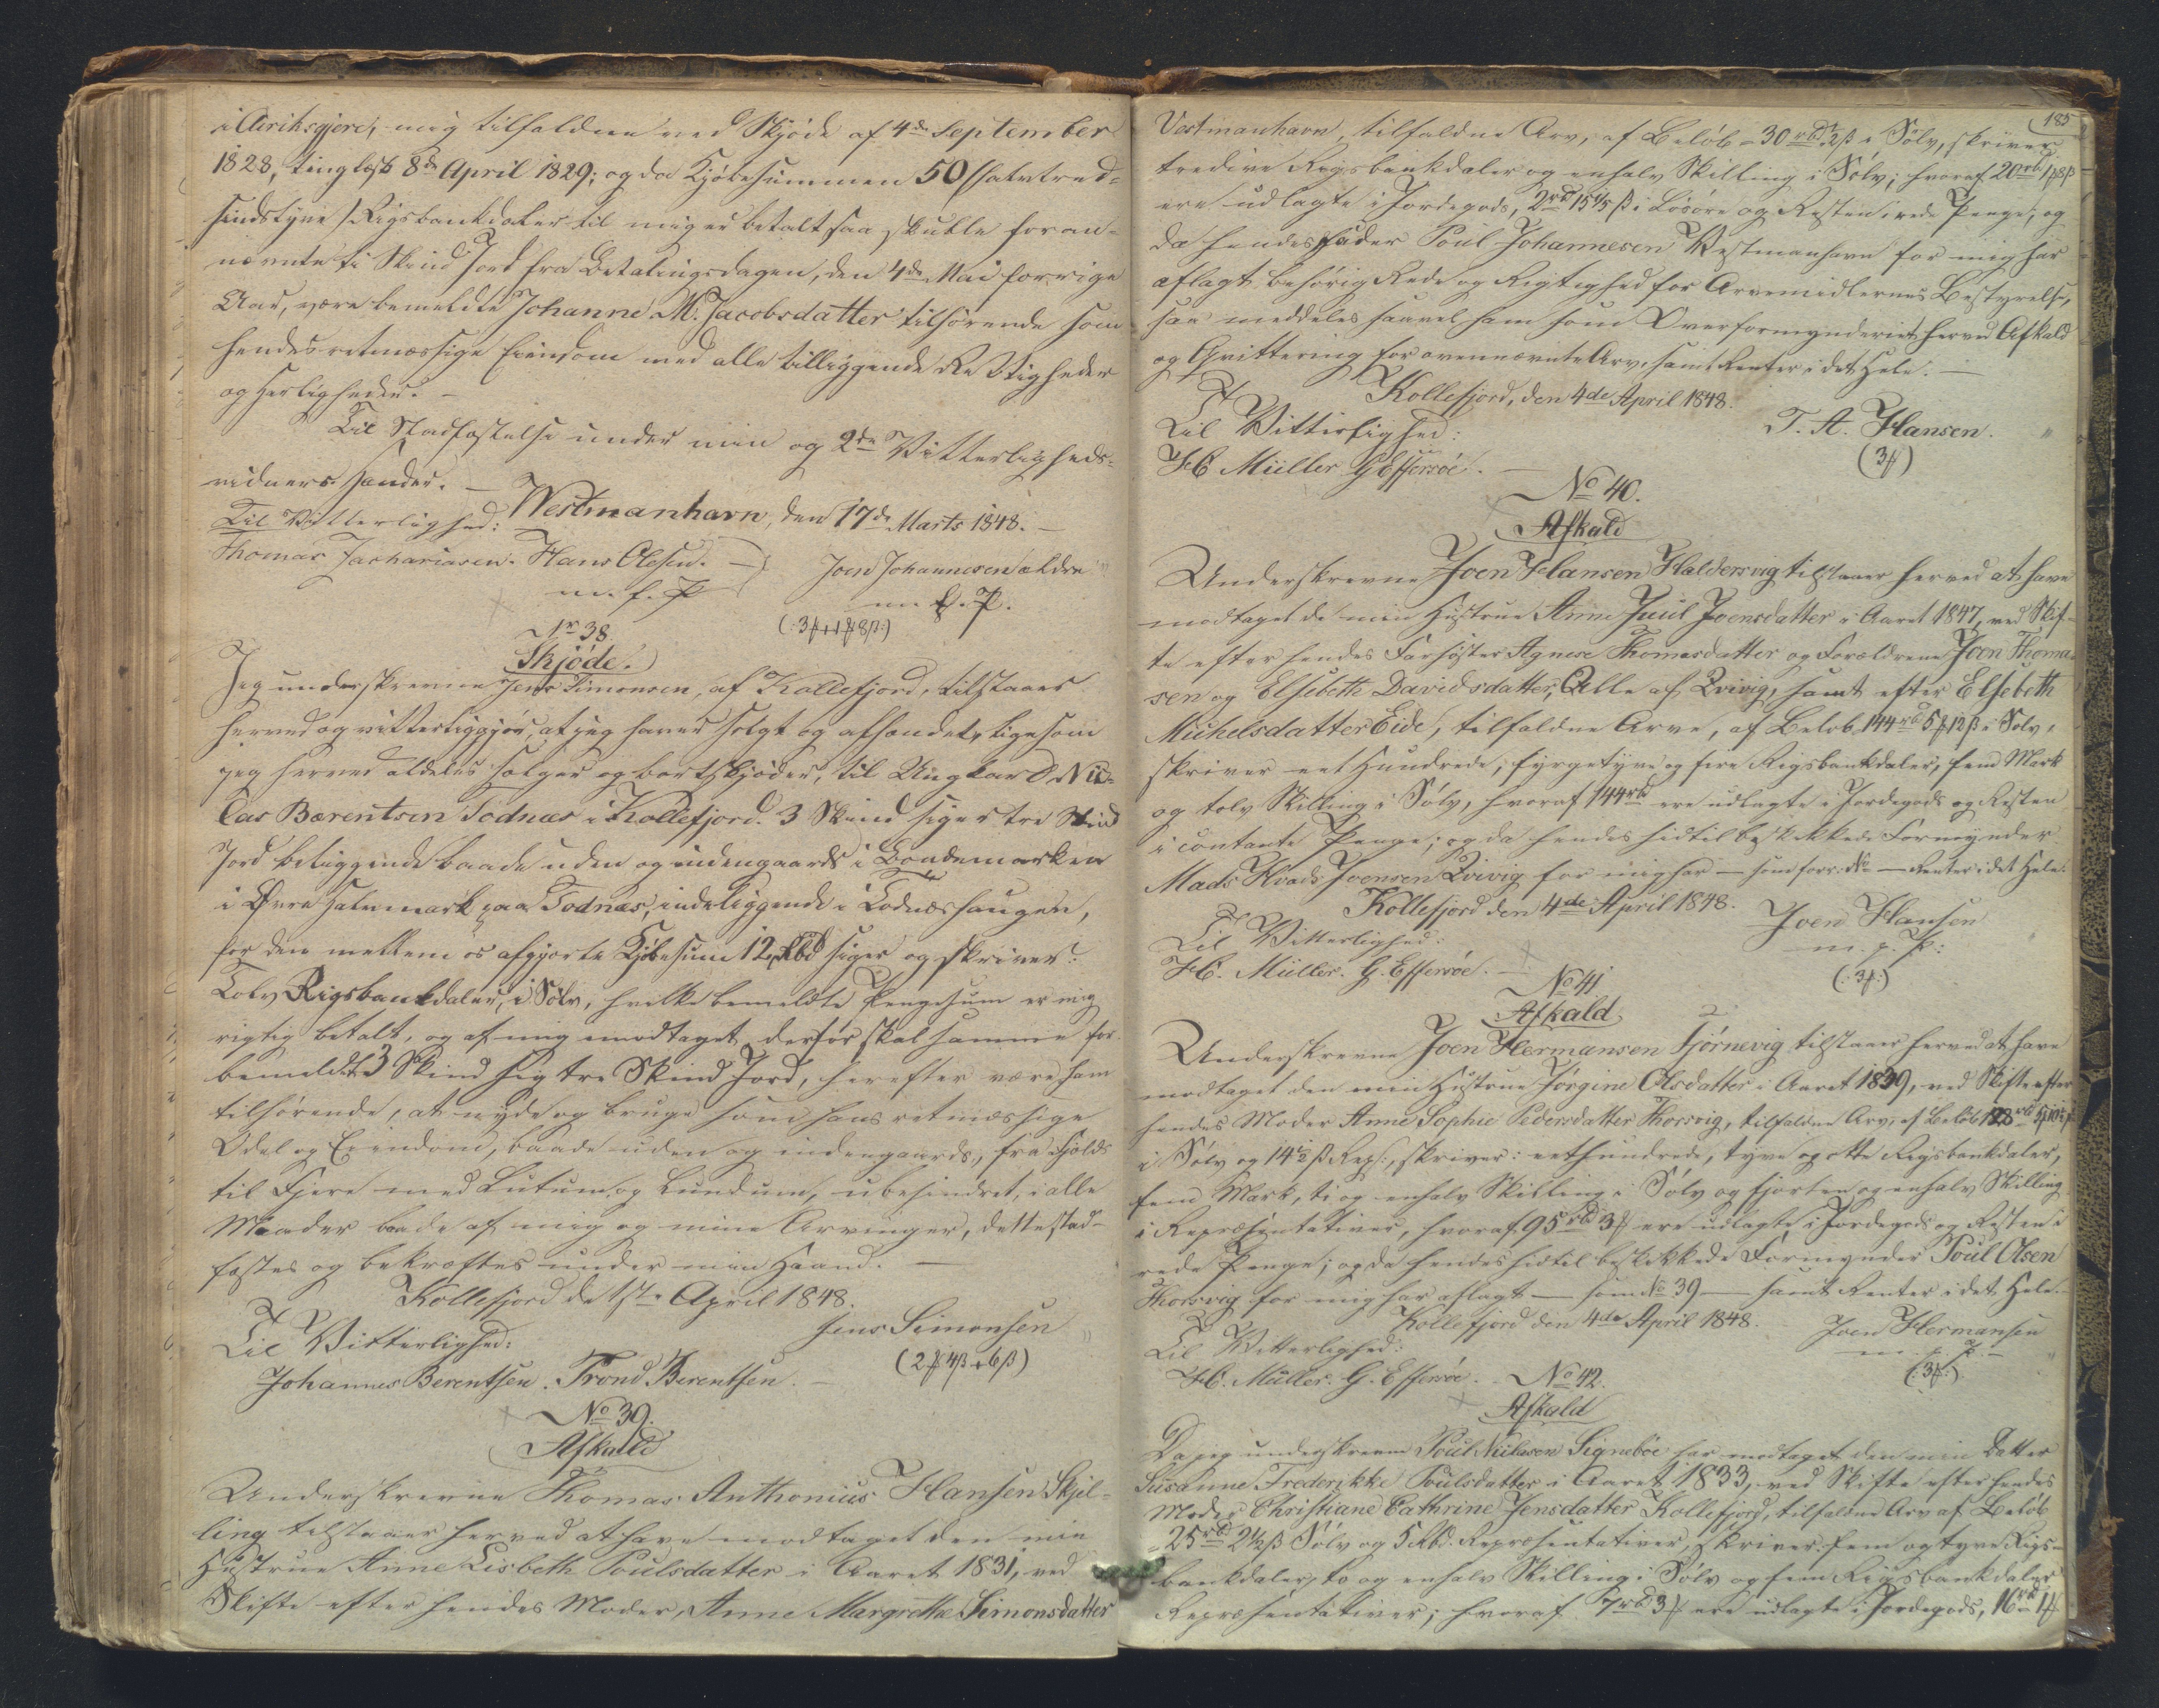 i Uerihsgjere, mig tilfalden ved Skjøde af 4de September
1828, tinglyst 8de April 1829; og da Kjøbesummen 50 (halvtred-
sindstyve) Rigsbankdaler til mig er betalt saa skulle foran-
nævnte ti Skind Jord fra Betalingsdagen, den 4de Mai forrige
Aar, være bemeldte Johanne M. Jacobsdatter tilhørende som
hendes retmæssige Eiendom med alle tilliggende Rettigheder
og Herligheder. —
Til Stadfæstelse under min og 2de Vitterligheds-
vidners Hænder. —
Westmanhavn, den 17de Marts 1848. —
Til Vitterlighed:
Thomas Zachariasen. Hans Olesen. — Joen Johannesen ældre
m. f. P. m. f. P.
Nr 38.
Skjøde.
Jeg underskrevne Jens Simonsen, af Kollefjord, tilstaaer
herved og vitterliggjør, at jeg haver solgt og afhændet, ligesom
jeg herved aldeles sælger og bortskjøder, til Ungkarl Nic-
las Bærentsen Todnæs i Kollefjord. 3 Skind siger tre Skind
Jord beliggende baade uden og indengaards i Bondemarken
i Øvre Halvmark paa Todnæs, indeliggende i Todnæshaugen,
for den mellem os afgjorte Kjøbesum 12 Rbd siger og skriver:
Tolv Rigsbankdaler, i Sølv, hvilke bemeldte Pengesum er mig
rigtig betalt, og af mig modtaget, derfor skal samme for-
bemeldte 3 Skind sig tre Skind Jord, herefter være ham
tilhørende, at nyde og bruge som hans retmæssige
Odel og Eiendom, baade uden og indengaards, fra Fjelds
til Fjere med Lutum og Lundum, ubehindret, i alle
Maader baade af mig og mine Arvinger, dette stad-
fæstes og bekræftes under min Haand. —
Kollefjord de 1ste April 1848.
Til Vitterlighed: Jens Simonsen
Johannes Berentsen. Trond Berentsen. — (2 ₰ 4 ß + 6 ß)
No 39.
Afkald
Underskrevne Thomas Anthonius Hansen Skjel-
ling tilstaaer herved at have modtaget den min
Hustrue Anne Lisbeth Poulsdatter i Aaret 1831, ved
Skifte efter hendes Moder, Anne Margrethe Simonsdatter
185
Vestmanhavn, tilfaldne Arv, af Beløb 30 rbd ½ ß i Sølv, skriver
tredive Rigsbankdaler og enhalv Skilling i Sølv; hvoraf 20 rbd
ere udlagte i Jordegods, 2 rbd i Løsøre og Resten i rede Penge; og
da hendes Fader Poul Johannesen Vestmanhavn for mig har
aflagt behørig Rede og Rigtighed for Arvemidlernes Bestyrelse,
saa meddeles saavel ham som Overformynderiet herved Afkald
og Qvittering for ovennævnte Arv, samt Renter i det Hele. —
Kollefjord, den 4de April 1848.
Til Vitterlighed: T. A. Hansen.
H C. Müller. G. Effersøe. — (3 ₰)
No 40.
Afkald
Underskrevne Joen Hansen Haldersvig tilstaaer herved at have
modtaget de min Hustrue Anne Juul Joensdatter i Aaret 1847, ved Skif-
te efter hendes Farsøster Agnese Thomasdatter og Forældrene Joen Thoma-
sen og Elsebeth Davidsdatter, Alle af Qvivig, samt efter Elsebeth
Michelsdatter Eide, tilfaldne Arve, af Beløb 144 rbd 5 ₰ 12 ß i Sølv,
skriver eet Hundrede, fyrgetyve og fire Rigsbankdaler, fem Mark
og tolv Skilling i Sølv, hvoraf 144 rbd ere udlagte i Jordegods og Resten
i contante Penge; og da hendes hidtil beskikkede Formynder
Mads Joensen Qvivig for mig har — som forr. No — Renter i det Hele.
Kollefjord den 4de April 1848.
Til Vitterlighed: Joen Hansen
H C. Müller. G. Effersøe. — m. f. P.
No 41. (3 ₰)
Afkald
Underskrevne Joen Hermansen Tjørnevig tilstaaer herved at have
modtaget den min Hustrue Jørgine Olsdatter i Aaret 1839, ved Skifte efter
hendes Moder Anne Sophie Pedersdatter Thorsvig, tilfaldne Arv, af Beløb 128 rbd
i Sølv og 14½ ß Rep., skriver: eethundrede, tyve og otte Rigsbankdaler,
fem Mark, ti og enhalv Skilling i Sølv og fjorten og enhalv Skilling
i Repræsentativer, hvoraf 95 rbd 3 ₰ ere udlagte i Jordegods og Resten i
rede Penge; og da hendes hidtil beskikkede Formynder Poul Olsen
Thorsvig for mig har aflagt — som No 39 — samt Renter i det Hele.
Kollefjord den 4de April 1848.
Til Vitterlighed: Joen Hermansen
H C. Müller. G. Effersøe. — m. f. P.
No 42. (3 ₰)
Afkald
Da jeg underskrevne Poul Nielsen Signebøe har modtaget den min Datter
Susanne Frederikke Poulsdatter i Aaret 1833, ved Skifte efter hendes
Moder Christiane Cathrine Jensdatter Kollefjord, tilfaldne Arv af Beløb
25 rbd 2½ ß Sølv og 5 Rbd. Repræsentativer, skriver fem og tyve Rigs-
bankdaler, to og enhalv Skilling i Sølv og fem Rigsbankdaler
Repræsentativer; hvoraf 7 rbd 3 ₰ ere udlagte i Jordegods, 16 rbd 1 ₰